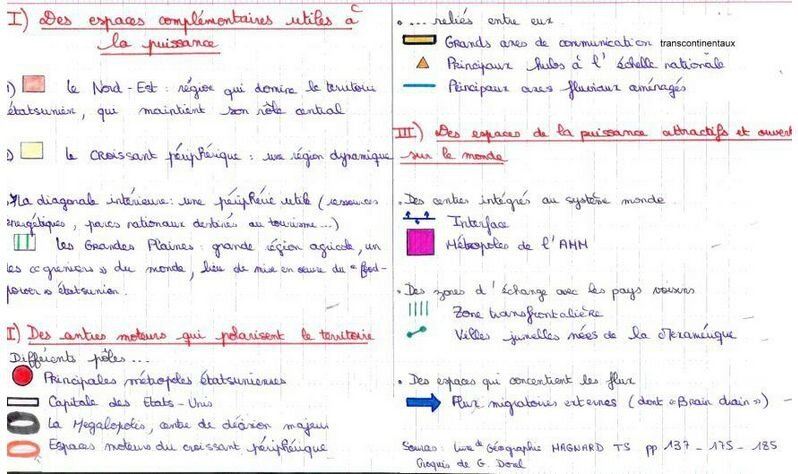 I) Des espaces complémentaires utiles à
la puissance
1) le Nord-Est : région qui domine le territoire
étatsunien, qui maintient son rôle central
) le croissant périphérique : une région dynamique
La diagonale intérieure : une périphérie utile (ressources
énergétiques, parcs nationaux destinés au tourisme...)
les Grandes Plaines : grande région agricole, un
des « greniers » du monde, lieu de mise en oeuvre du « food-
power » étatsunien.
I) Des centres moteurs qui polarisent le territoire
Différents pôles...
Principales métropoles étatsuniennes
Capitale des Etats-Unis
La Megalopolis, centre de décision majeur
Espaces moteurs du croissant périphérique
• ... reliés entre eux
Grands axes de communication transcontinentaux
Principaux hubs à l'échelle nationale
Principaux axes fluviaux aménagés
III) Des espaces de la puissance attractifs et ouvert
sur le monde
• Des centres intégrés au système monde
Interface
Métropoles de l'AMM
• Des zones d'échange avec les pays voisins
Zone transfrontalière
Villes jumelles nées de la Mexamérique
• Des espaces qui concentrent les flux
Flux migratoires externes (dont « Brain drain »)
Sources : Livre de Géographie MAGNARD TS pp 137 - 175 - 185
Croquis de G. Dorel